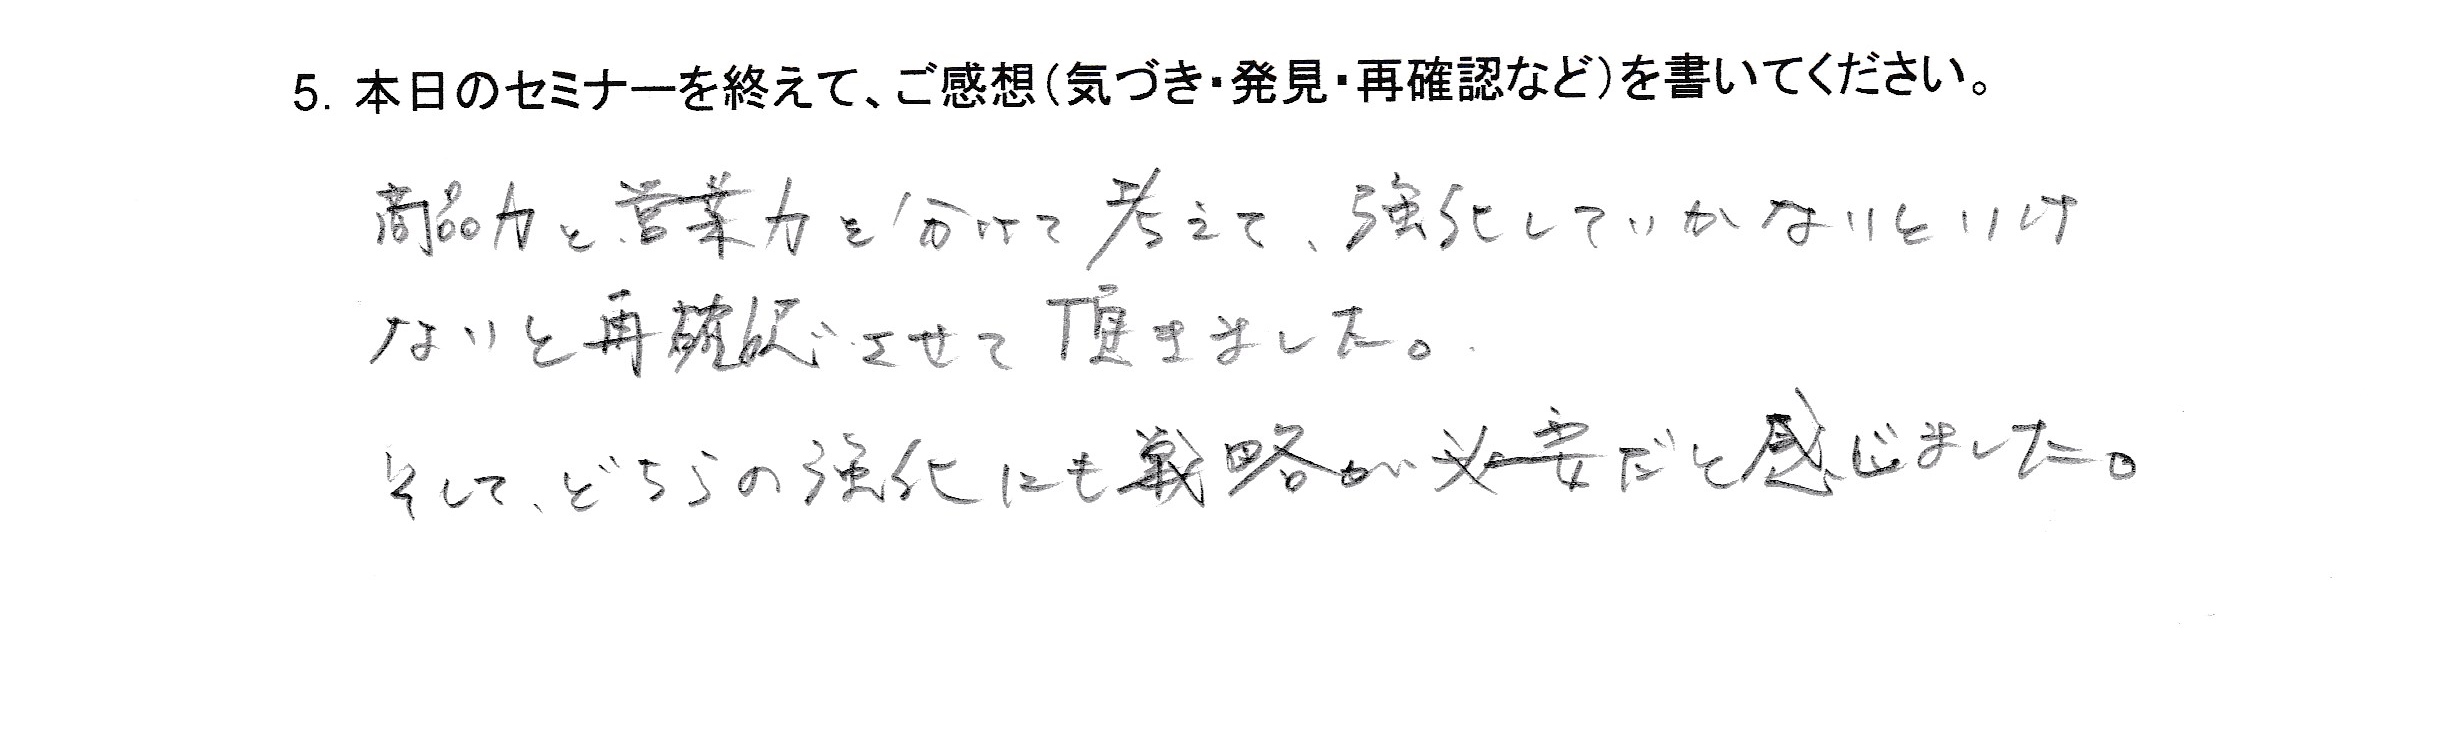 5. 本日のセミナーを終えて、ご感想(気づき・発見・再確認など)を書いてください。
商品力と営業力を分けて考えて、強化していかないといけ
ないと再確認させて頂きました。
そして、どちらの強化にも戦略が必要だと感じました。